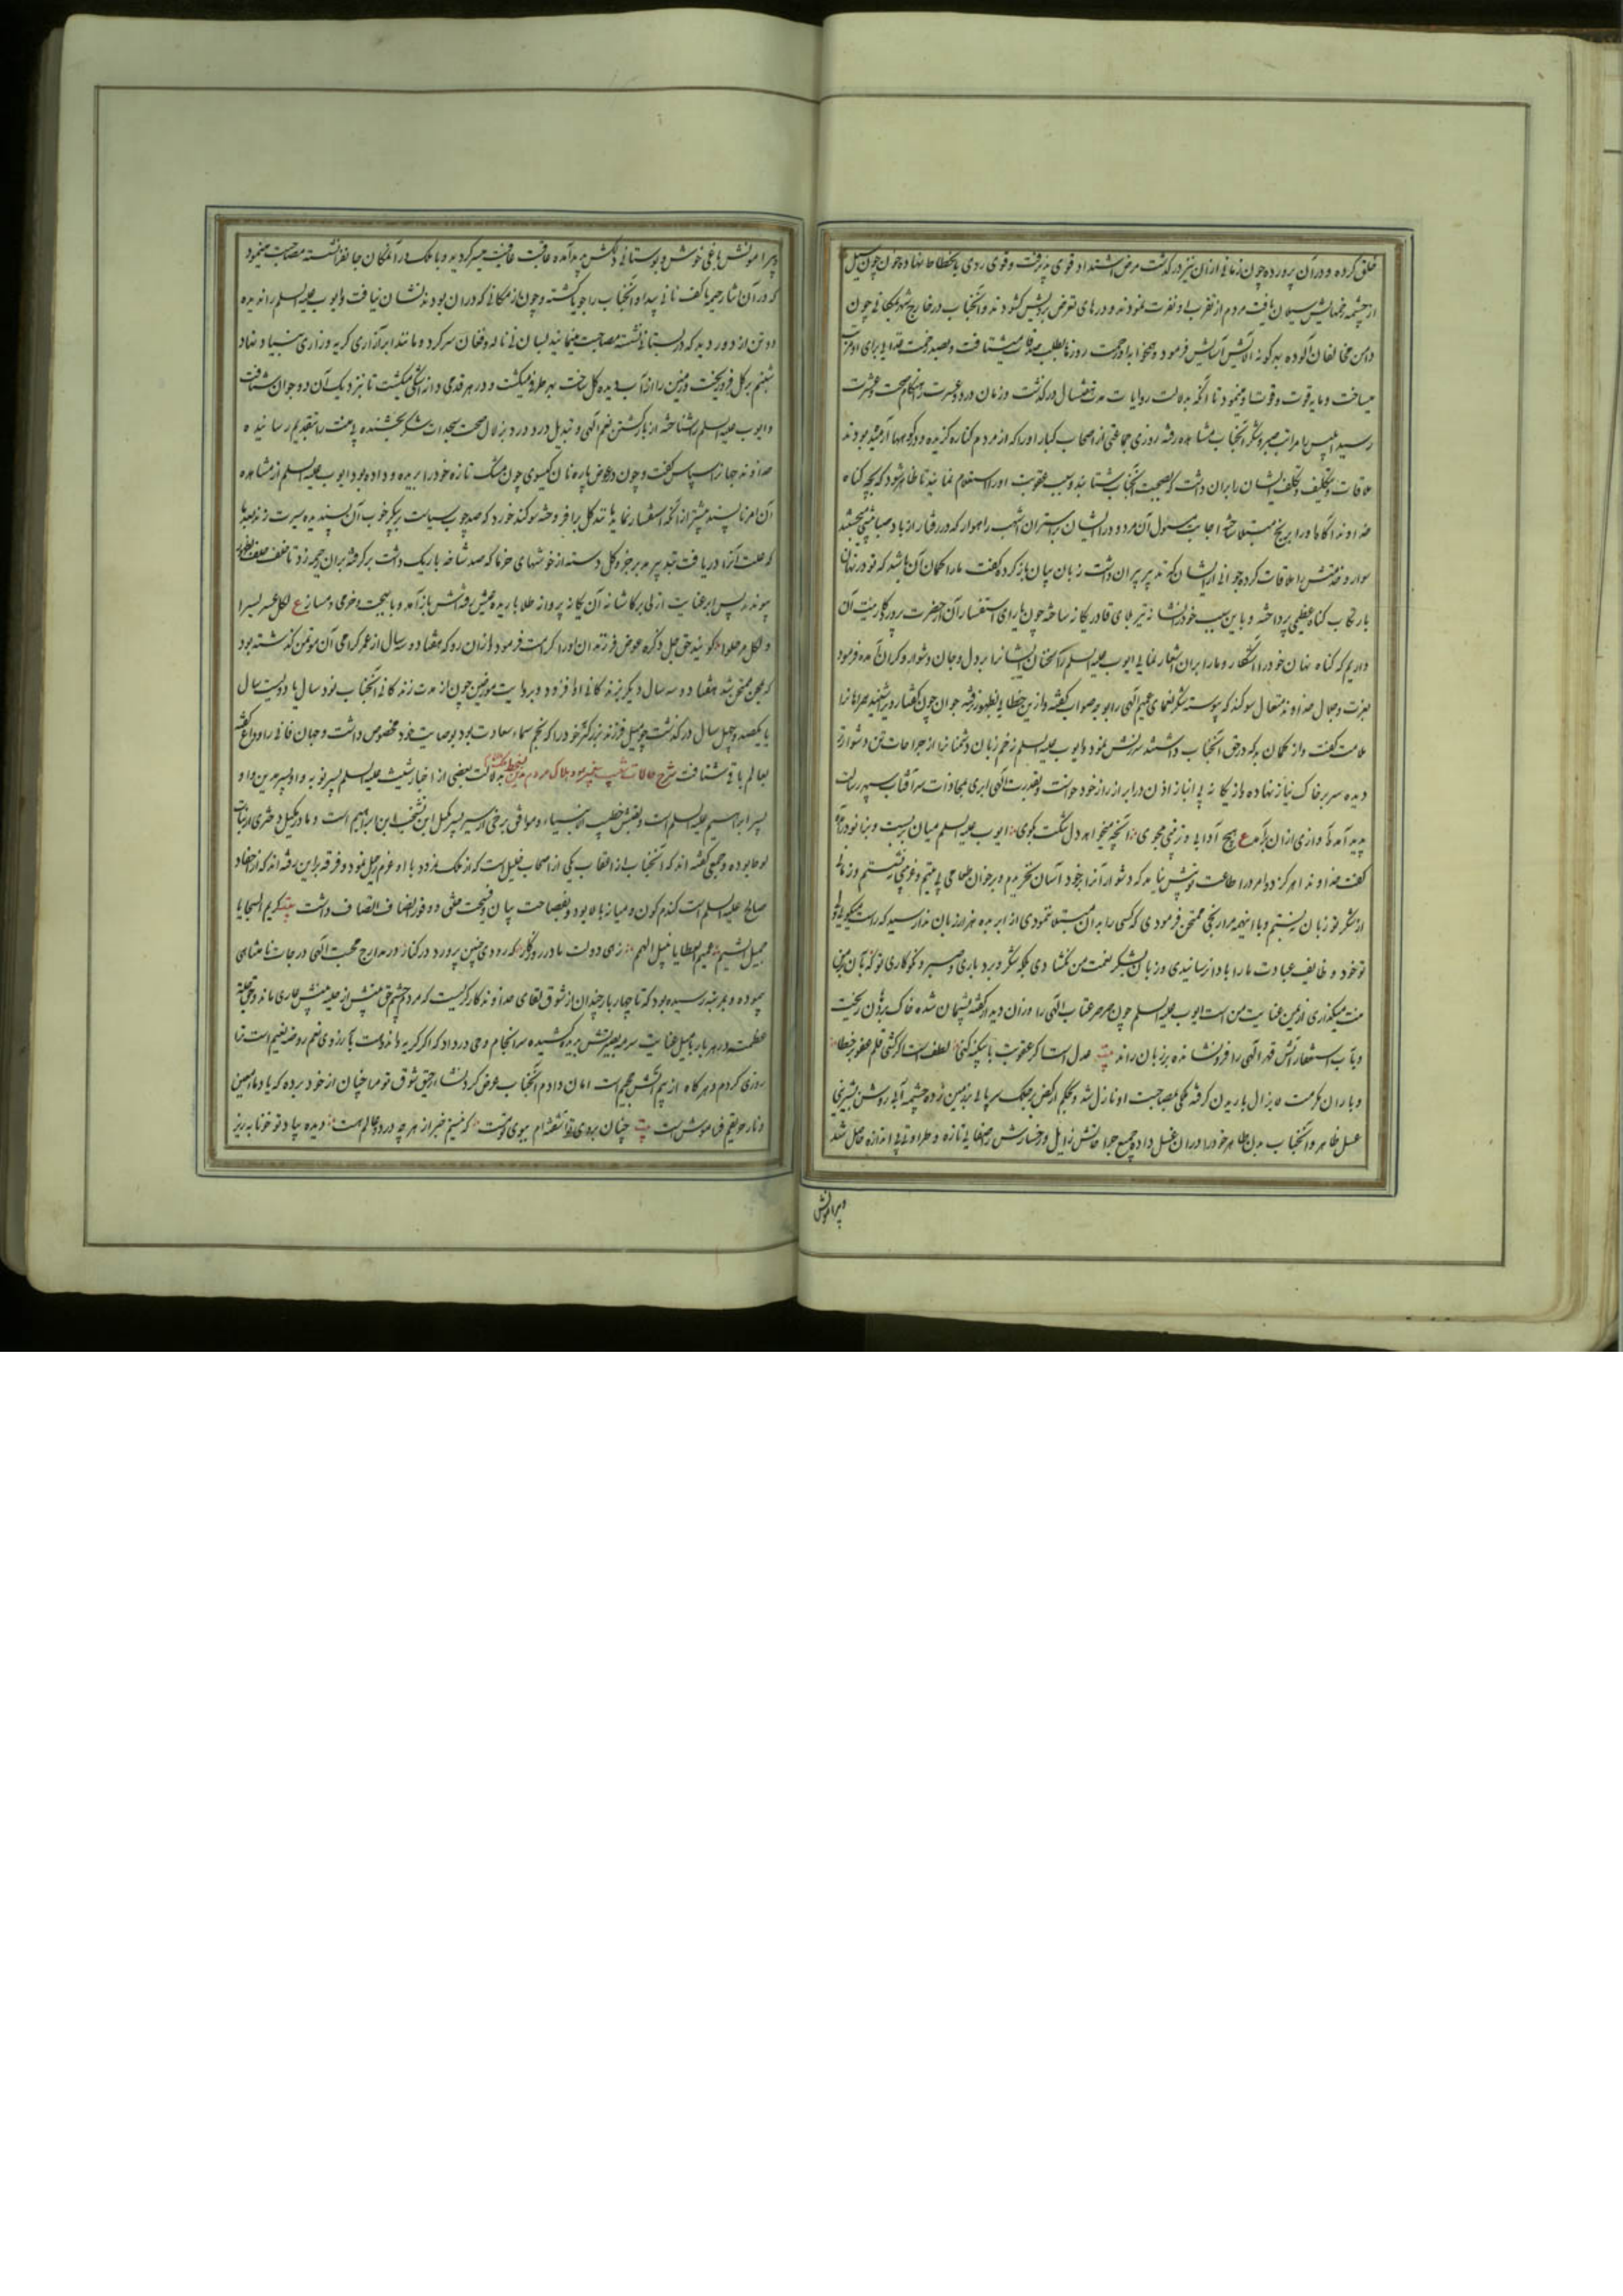 خلق کرده و در آن پرورده چون زمانی ازان نیز درگذشت مرض اشتداد قوی پذیرفت و قوی روی بانحطاط نهاده خون چون سیل
از چشمه زخمهایش سیلان یافت مردم از تقرب او نفرت نمودند و درهای تعرض برویش کشودند و آنجناب در خارج شهر بمکانی چون
دامن مخالفان آلوده بهرگونه آلایش آسایش فرمود و همخوابه او رحمت روزها بطلب صدقات میشتافت و بصد زحمت غذایی برای او مرتب
میساخت و مایه قوت و قوت او میبود تا آنکه بدلالت روایات مدت هفت سال درگذشت و زمان درد و عسرت را هنگام صحت و عشرت
رسید ابلیس را مراتب صبر و شکر آنجناب مشاهده رفته روزی جماعتی از اصحاب کبار او را که از مردم کناره گزیده و در کوهها آرمیده بودند
ملاقات و بتکلیف و تکلف ایشان را بران داشت که بصحبت آنجناب شتابند و سبب عقوبت او را استعلام نمایند تا ظاهر شود که بچه گناه
خداوند آگاه او را برنج مبتلا ساخته اجابت مسئول آن مردود را ایشان بر استران اشهب راهوار که در رفتار از باد صبا پیشی میجستند
سوار و خدمتش را ملاقات کرده جوانی از ایشان که تدبیر پیران داشت زبان بیان باز کرد و گفت ما را گمان آن باشد که تو در نهان
بارتکاب گناه عظیمی پرداخته و باین سبب خود را نشانه تیر بلای قادر یگانه ساخته چون ما را یارای استفسار آن از حضرت پروردگار نیست آن
داریم که گناه نهان خود را آشکار و ما را بران اشعار نمایی ایوب علیه السلم را سخنان ایشان را بر دل و جان دشوار و گران آمده فرمود
بعزت و جلال خداوند متعال سوگند که پیوسته شکر نعمای عمیم الهی را بوجه صواب گفته و از من خطایی بظهور نرفته جوان چون گفتار دیر شنید مراد را
ملامت گفت و از گمان بد که در حق آنجناب داشتند سرزنش نمود و ایوب علیه السلم زخم زبان دشمنان را از جراحات تن دشوارتر
دیده سر بر خاک نیاز نهاده و از یگانه بی انباز اذن در ابراز راز خود خواست و بقدرت الهی ابری بمحاذات سر آفتاب سپهر رسالت
پدید آمد و آوازی ازان برآمد ع هیچ آدابی و ترتیبی مجوی ؛ آنچه میخواهد دل تنگت بگوی ؛ ایوب علیه السلم میان بربست و بنیاد نو درآمد
گفت خداوندا هرگز دو امر در اطاعت تو پیش نیامد که دشوار آنرا بخود آسان نخریدم و بر خوان طعامی بی یتیم و غریبی ننشستم و زمانی
از شکر تو زبان نبستم و با اینهمه مرا برنجی ممتحن فرمودی که کسی را بدان مبتلا ننمودی از ابر بده هزار زبان ندا رسید که راست میگویی لیکن
تو خود وظایف عبادت ما را با دا رسانیدی و زبان بشکر نعمت من گشادی بلکه شکر و بردباری و صبر و نکوکاری تو که بآن بر من
منت میگذاری از من عنایت من است ایوب علیه السلم چون صرصر عتاب الهی را وزان دید از گفته پشیمان شده خاک بر دهان ریخت
و بآب استغفار آتش قهر الهی را فرو نشانده بر زبان راند بیت عدل است اگر عقوبت ما بیگنه کنی ؛ لطف است اگر کشی قلم عفو بر خطا ؛
و باران کرمت ذو الجلال باریدن گرفته ملکی بمصاحبت او نازل شد و بحکم ارکض برجلک سر پایی بر زمین زده چشمه آبی روشن بشیرینی
عسل ظاهر و آنجناب بدن طاهر خود را دران غسل داده جمیع جراحاتش زایل و رخسارش را صفایی تازه و طراوتی بی اندازه حاصل شد
و پیرامونش
و پیرامونش باغی خوش و بوستانی دلکش پدید آمده عاقبت عافیت میسر گردید و با ملک در آن مکان جانفزا نشسته مصاحبت مینمود
که در آن اثنا رحیما کف نانی پیدا و آنجناب را جویا گشته و چون از مکانی که دران بود نشان نیافت و ایوب علیه السلم را ندیده
دو تن از دور دید که در بستانی نشسته مصاحبت مینمایند بسان نی ناله و فغان سر کرده و مانند ابر آزاری گریه و زاری بنیاد نهاد
شبنم بر گل فرو ریخت و زمین را از آب دیده گل ساخت بهر طرف میگشت و در هر قدمی دانه اشکی میکشت تا نزدیک آن دو جوان شتافت
و ایوب علیه السلم را شناخته از بازگشتن نعم الهی و تبدیل درد و درد بزلال صحت سجدات شکر بخشنده بی منت را بتقدیم رسانیده
خداوند جهان را سپاس گفت و چون در عوض پاره نان گیسوی چون مشک تازه خود را بریده و داده بود ایوب علیه السلم از مشاهده
آن امر ناپسند پیشتر از آنکه استفسار نماید مانند گل برافروخته سوگند خورد که صد چوب سیاست بر پیکر خوب آن پسندیده سیرت زند بعد ما
که علت آنرا دریافت بتدبیر مدبر جزو کل دسته از خوشهای خرما که صد شاخه باریک داشت برگرفته بران رحیمه زد تا خلف حلف بظهور
پیوندد پس ابر عنایت ازلی بر کاشانه آن یگانه پروانه طلا باریده عیش رفته اش باز آمد و با بهجت و خرمی دمساز ع لکل عسر یسرا
و لکل مر حلوا ؛ گویند حق جل ذکره عوض فرزندان او را کرامت فرمود ازان رو که هفتاد و سه سال از عمر گرامی آن مؤتمن گذشته بود
که بمحن ممتحن شد هفتاد و سه سال دیگر بزندگانی او افزود و بروایت مورخین چون از مدت زندگانی آنجناب نود سال یا دویست سال
یا یکصد و چهل سال درگذشت حومیل فرزند بزرگتر خود را که نجم سماء سعادت بود بوصایت خود مخصوص داشت و جهان فانی را وداع گفته
بعالم باقی شتافت شرح حالات شعیب پیغمبر و هلاک مردم مدین بدلالت بعضی از اخبار شعیب علیه السلم پسر نویه و او پسر مدین و او
پسر ابراهیم علیه السلم است و لقبش خطیب الانبیاء و موافق برخی از سیر پسر میکیل ابن یشجب ابن ابراهیم است و مادر میکیل دختری از بنات
لوط بوده و جمعی گفته اند که آنجناب از اعقاب یکی از اصحاب خلیل است که از ملک نمرود با او عزم رحیل نمود و فرقه براین رفته اند که از احفاد
صالح علیه السلم است گندم گون و میانه بالا بود و بفصاحت بیان و نصیحت خلق و وفور انصاف اتصاف داشت بیت کریم السجایا
جمیل الشیم ؛ عمیم العطایا نبیل الهمم ؛ زهی دولت مادر روزگار ؛ که رودی چنین پرورد در کنار ؛ در مدارج محبت الهی درجات نامتناهی
پیموده و بمرتبه رسیده بود که تا چهار بار چندان از شوق لقای خداوندگار گریست که مردم چشم حق بینش از حلیه بینش عاری ماند و حق جلت
عظمته در هر بار بمیل عنایت سرمه بصیرتش بدیده کشیده سرانجام وحی در داد که اگر گریه و اندوهت بآرزوی نعم روضه نعیم است ترا
روزی کردم و هرگاه از بیم آتش جحیم است امان دادم آنجناب عرض کرد نشاء رحیق شوق تو مرا چنان از خود برده که یاد ماء معین
و نار حمیم فراموش است بیت چنان بروی تو آشفته ام ببوی تو مست ؛ که نیستم خبر از هر چه در دو عالم هست ؛ دیده بیاد تو خونابه ریز